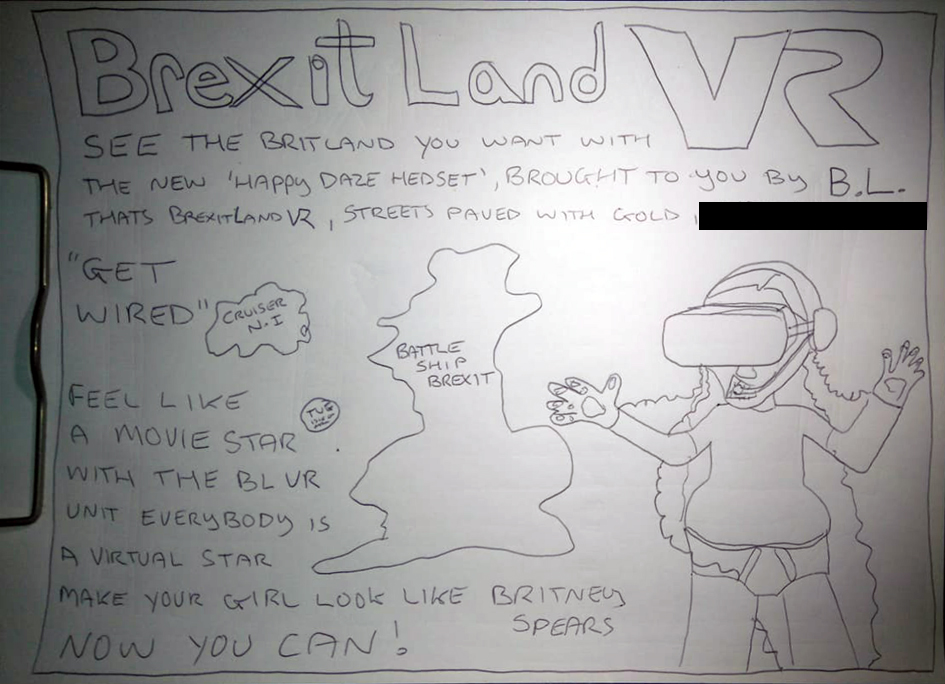 Brexit Land VR
SEE THE BRITLAND YOU WANT WITH
THE NEW 'HAPPY DAZE HEDSET', BROUGHT TO YOU BY B.L.
THATS BREXITLAND VR, STREETS PAVED WITH GOLD,
"GET
WIRED"
CRUISER
N.I
BATTLE
SHIP
BREXIT
FEEL LIKE
A MOVIE STAR
WITH THE BL VR
UNIT EVERYBODY IS
A VIRTUAL STAR
MAKE YOUR GIRL LOOK LIKE BRITNEY
SPEARS
NOW YOU CAN!